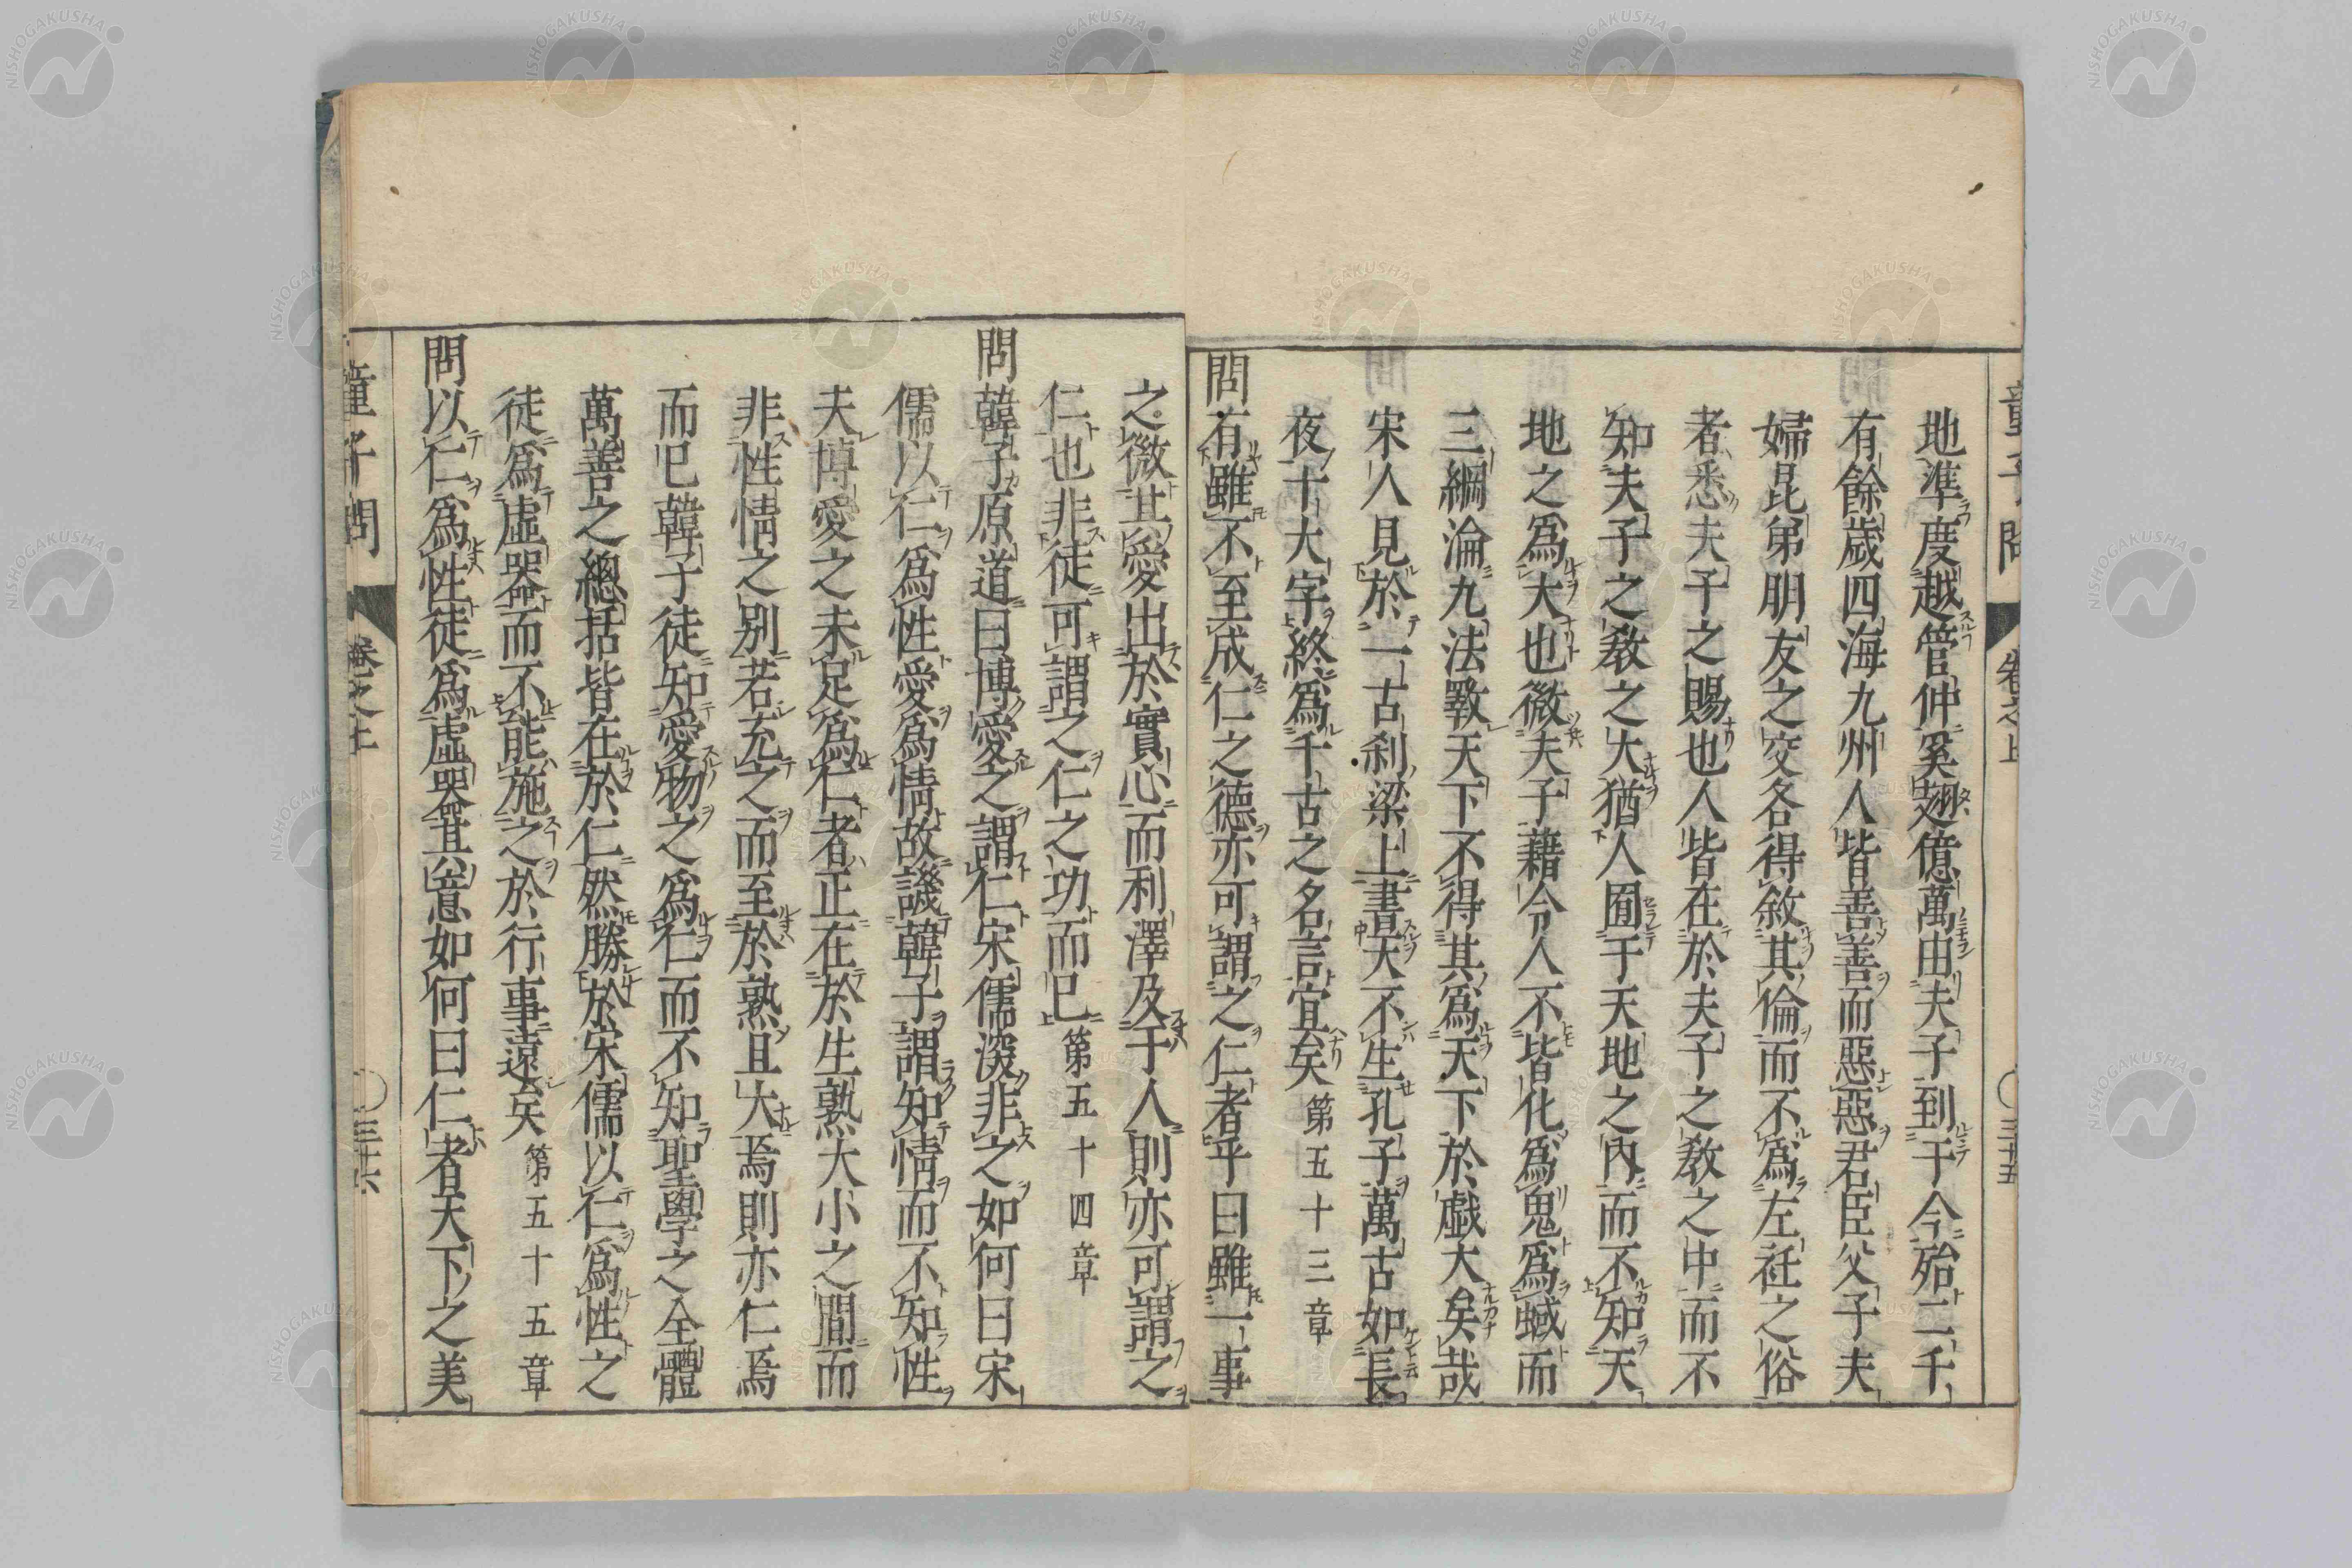 地準度越管仲奚翅億萬由夫子到于今殆二千
有餘歲四海九州人皆善善而惡惡君臣父子夫
婦昆弟朋友之交各得敘其倫而不爲左衽之俗
者悉夫子之賜也人皆在於夫子之敎之中而不
知夫子之敎之大猶人囿于天地之內而不知天
地之爲大也微夫子藉令人不皆化爲鬼爲蜮而
三綱淪九法斁天下不得其爲天下於戲大矣哉
宋人見於一古刹梁上書天不生孔子萬古如長
夜十大字終爲千古之名言宜矣第五十三章
問有雖不至成仁之德亦可謂之仁者乎曰雖一事
之微其愛出於實心而利澤及于人則亦可謂之
仁也非徒可謂之仁之功而已第五十四章
問韓子原道曰博愛之謂仁宋儒深非之如何曰宋
儒以仁爲性愛爲情故譏韓子謂知情而不知性
夫博愛之未足爲仁者正在於生熟大小之間而
非性情之別若充之而至於熟且大焉則亦仁焉
而已韓子徒知愛物之爲仁而不知聖學之全體
萬善之總括皆在於仁然勝於宋儒以仁爲性之
徒爲虛器而不能施之於行事遠矣第五十五章
問以仁爲性徒爲虛器其意如何曰仁者天下之美
童子問
卷之上
三十六
童子問
卷之上
三十五
NISHOGAKUSHA